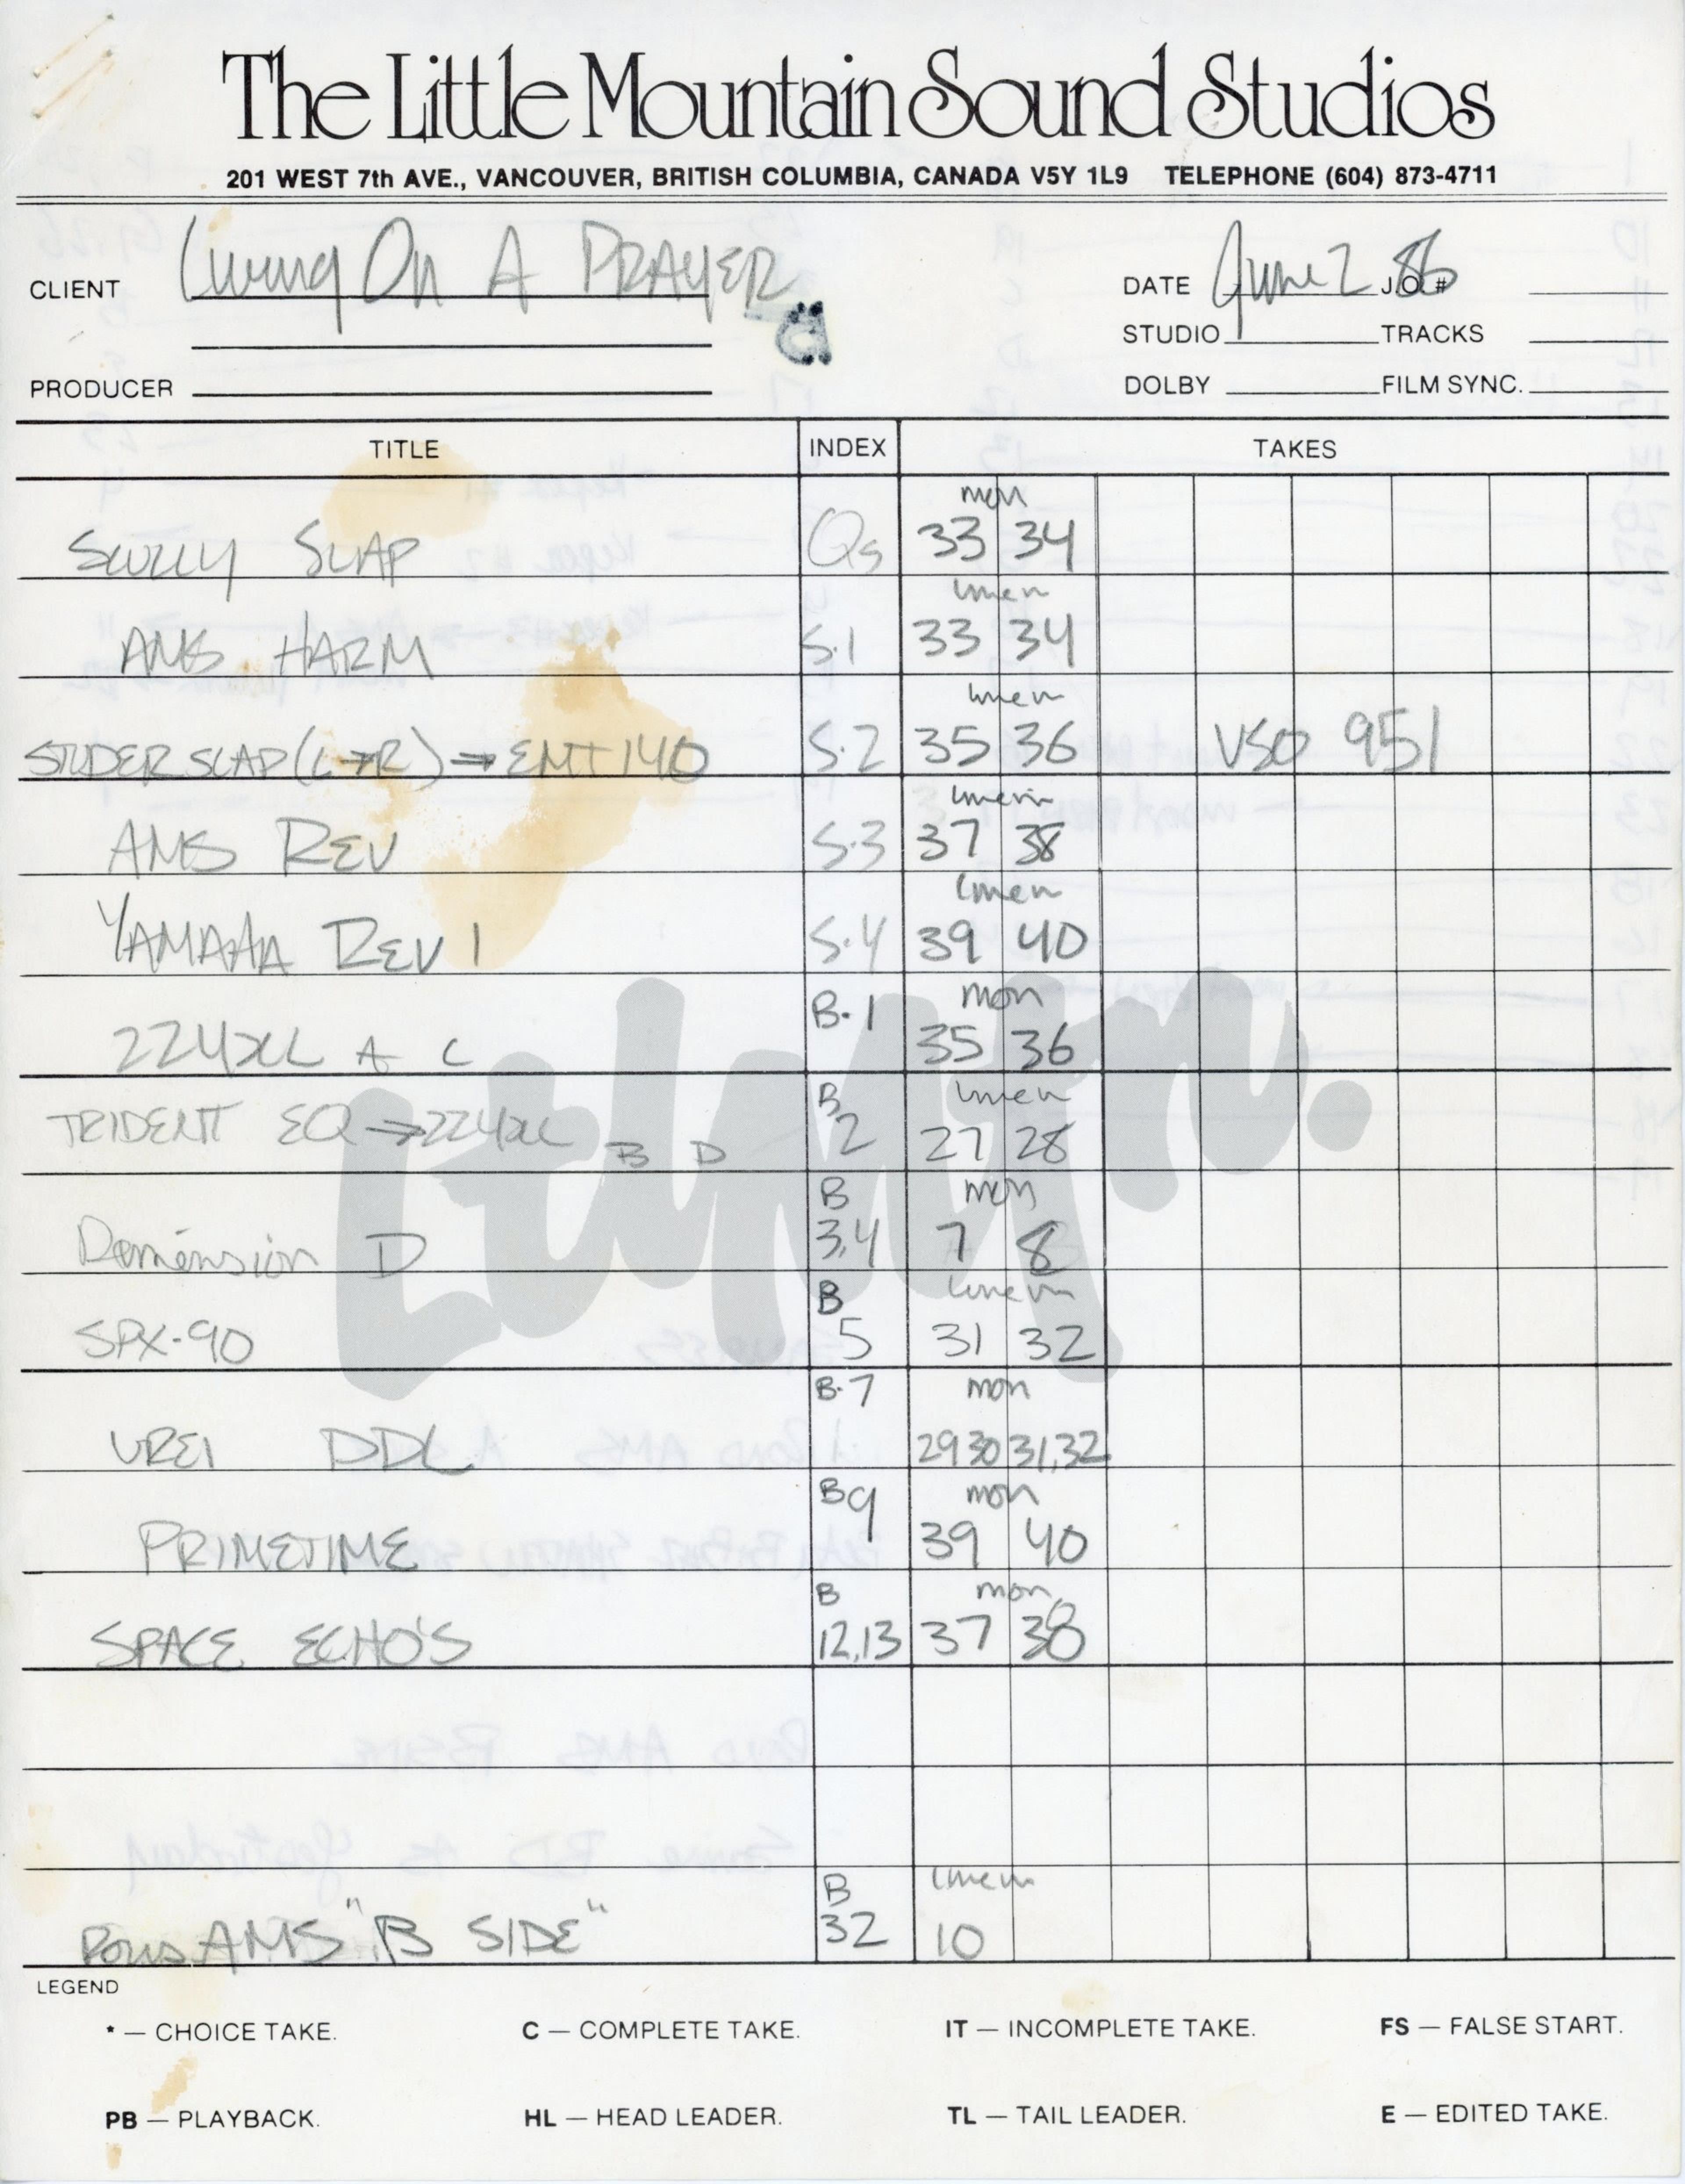 The Little Mountain Sound Studios
201 WEST 7th AVE., VANCOUVER, BRITISH COLUMBIA, CANADA V5Y 1L9 TELEPHONE (604) 873-4711
CLIENT Living On A PRAYER
DATE June 2 86 J.O. #
STUDIO TRACKS
PRODUCER
DOLBY FILM SYNC.
TITLE INDEX TAKES
mon
SCULLY SLAP Qs 33 34
AMS HARM S.1 33 34
STUDER SLAP (L→R) ⇒ EMT 140 S.2 35 36 VSO 951
AMS REV S.3 37 38
YAMAHA REV 1 S.4 39 40
B.1 mon
224XL A C 35 36
TRIDENT EQ → 224XL B D B 2 27 28
B mon
Demension D 3,4 7 8
B
SPX-90 5 31 32
B.7 mon
UREI DDL 29 30 31,32
B9 mon
PRIMETIME 39 40
B mon
SPACE ECHO'S 12,13 37 38
LtlMtn.
B
AMS "B SIDE" 32 10
LEGEND
* — CHOICE TAKE. C — COMPLETE TAKE. IT — INCOMPLETE TAKE. FS — FALSE START.
PB — PLAYBACK. HL — HEAD LEADER. TL — TAIL LEADER. E — EDITED TAKE.